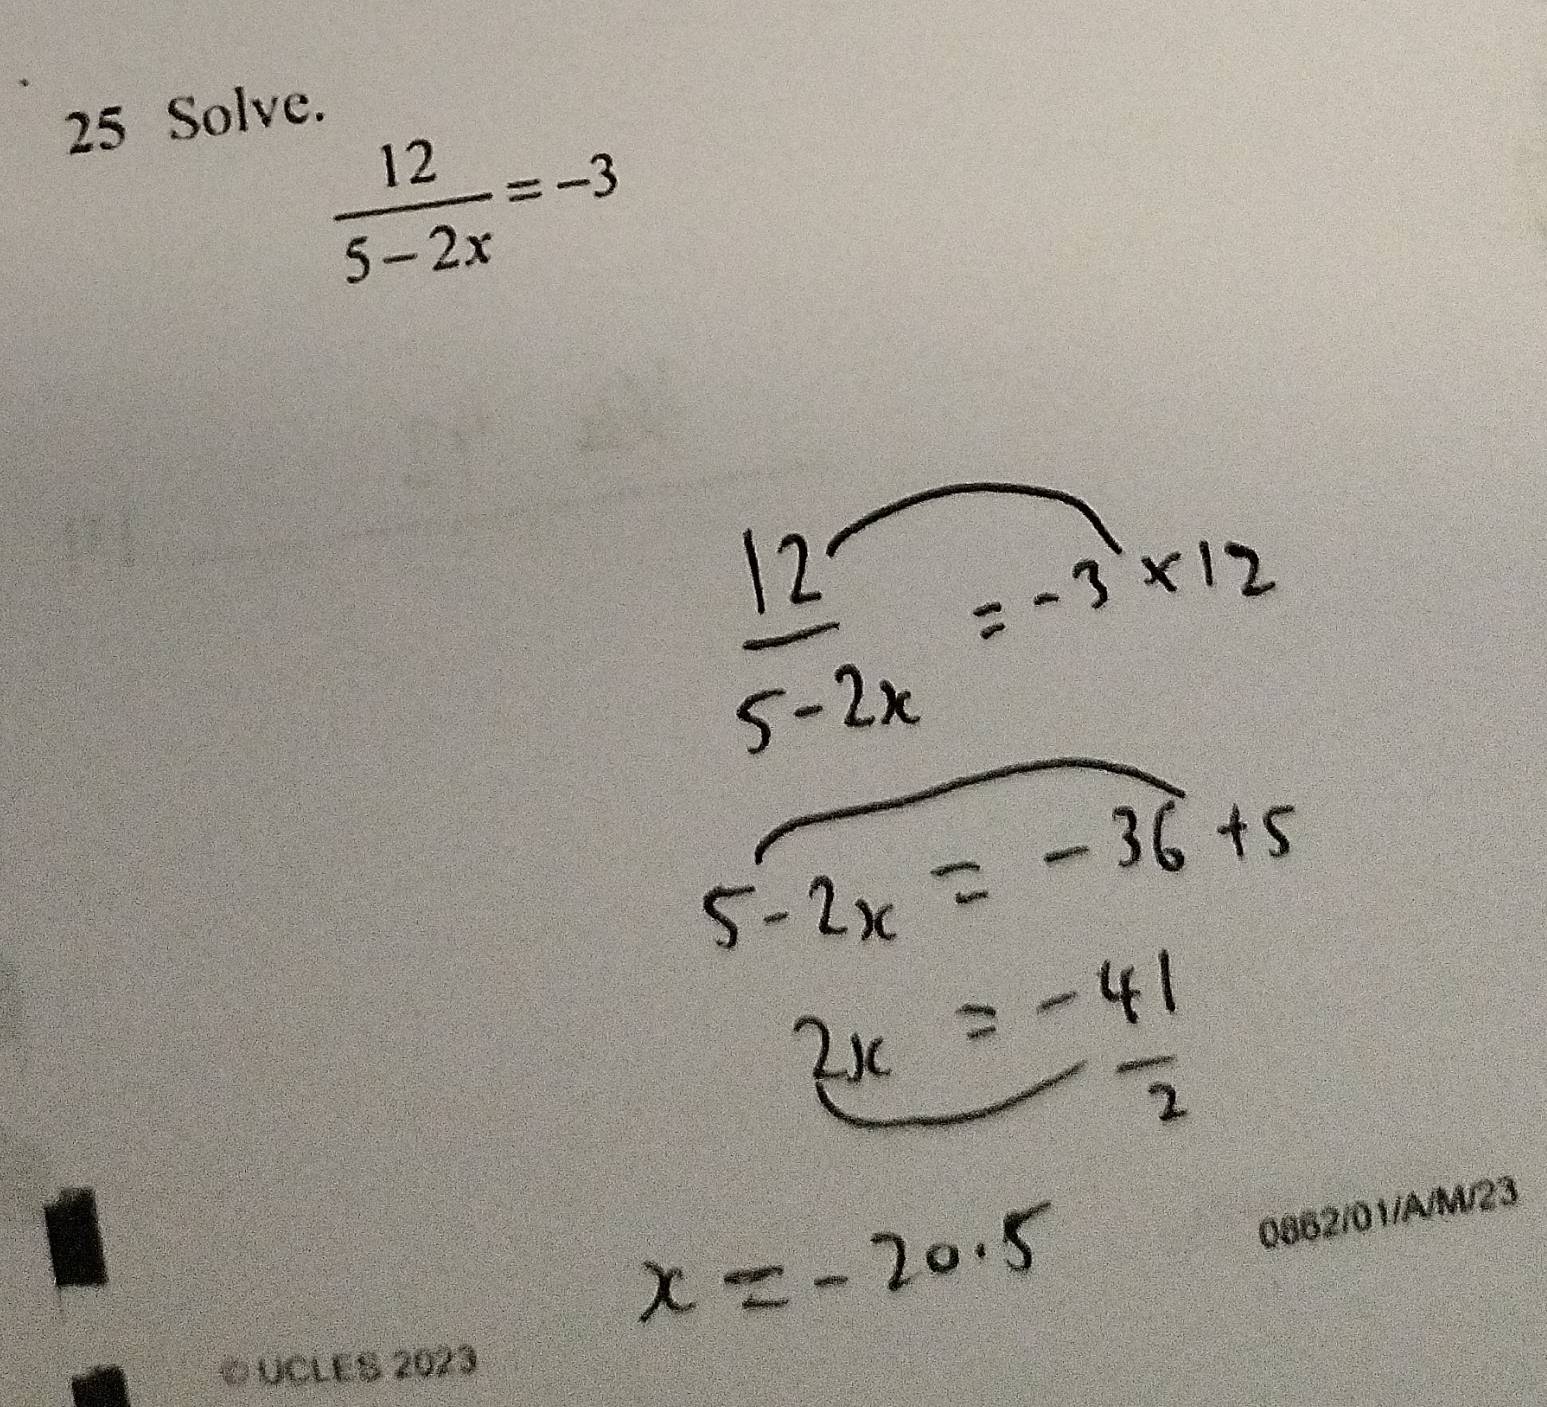 25 Solve.
12
5 – 2x
= –3
12
5-2x
= -3 × 12
5-2x = -36 +5
2x = -41
2
x = -20.5
0862/01/A/M/23
© UCLES 2023